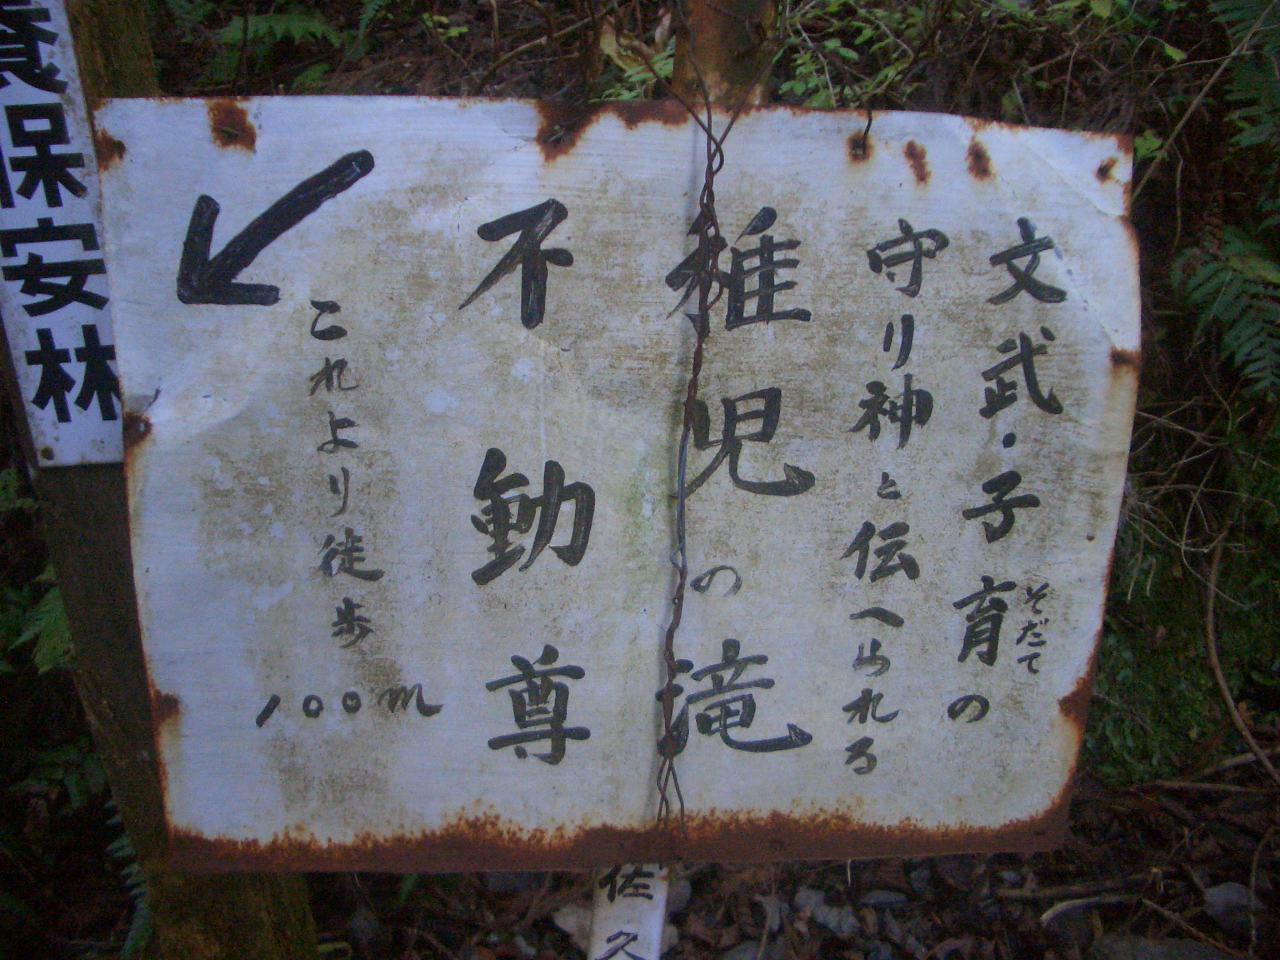 文武・子育の
そだて
守り神と伝へられる
稚児の滝
不動尊
これより徒歩
100m
養保安林
佐久